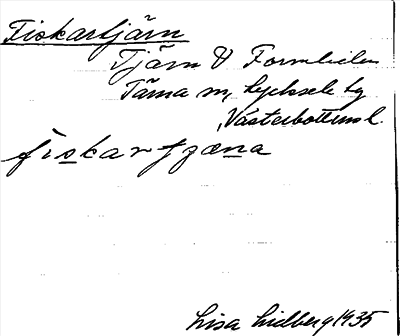 Fiskartjärn
Tjärn V Formliden
Tärna sn, Lycksele tg
Västerbottens l.
fiskartjæna
Lisa Lidberg 1935